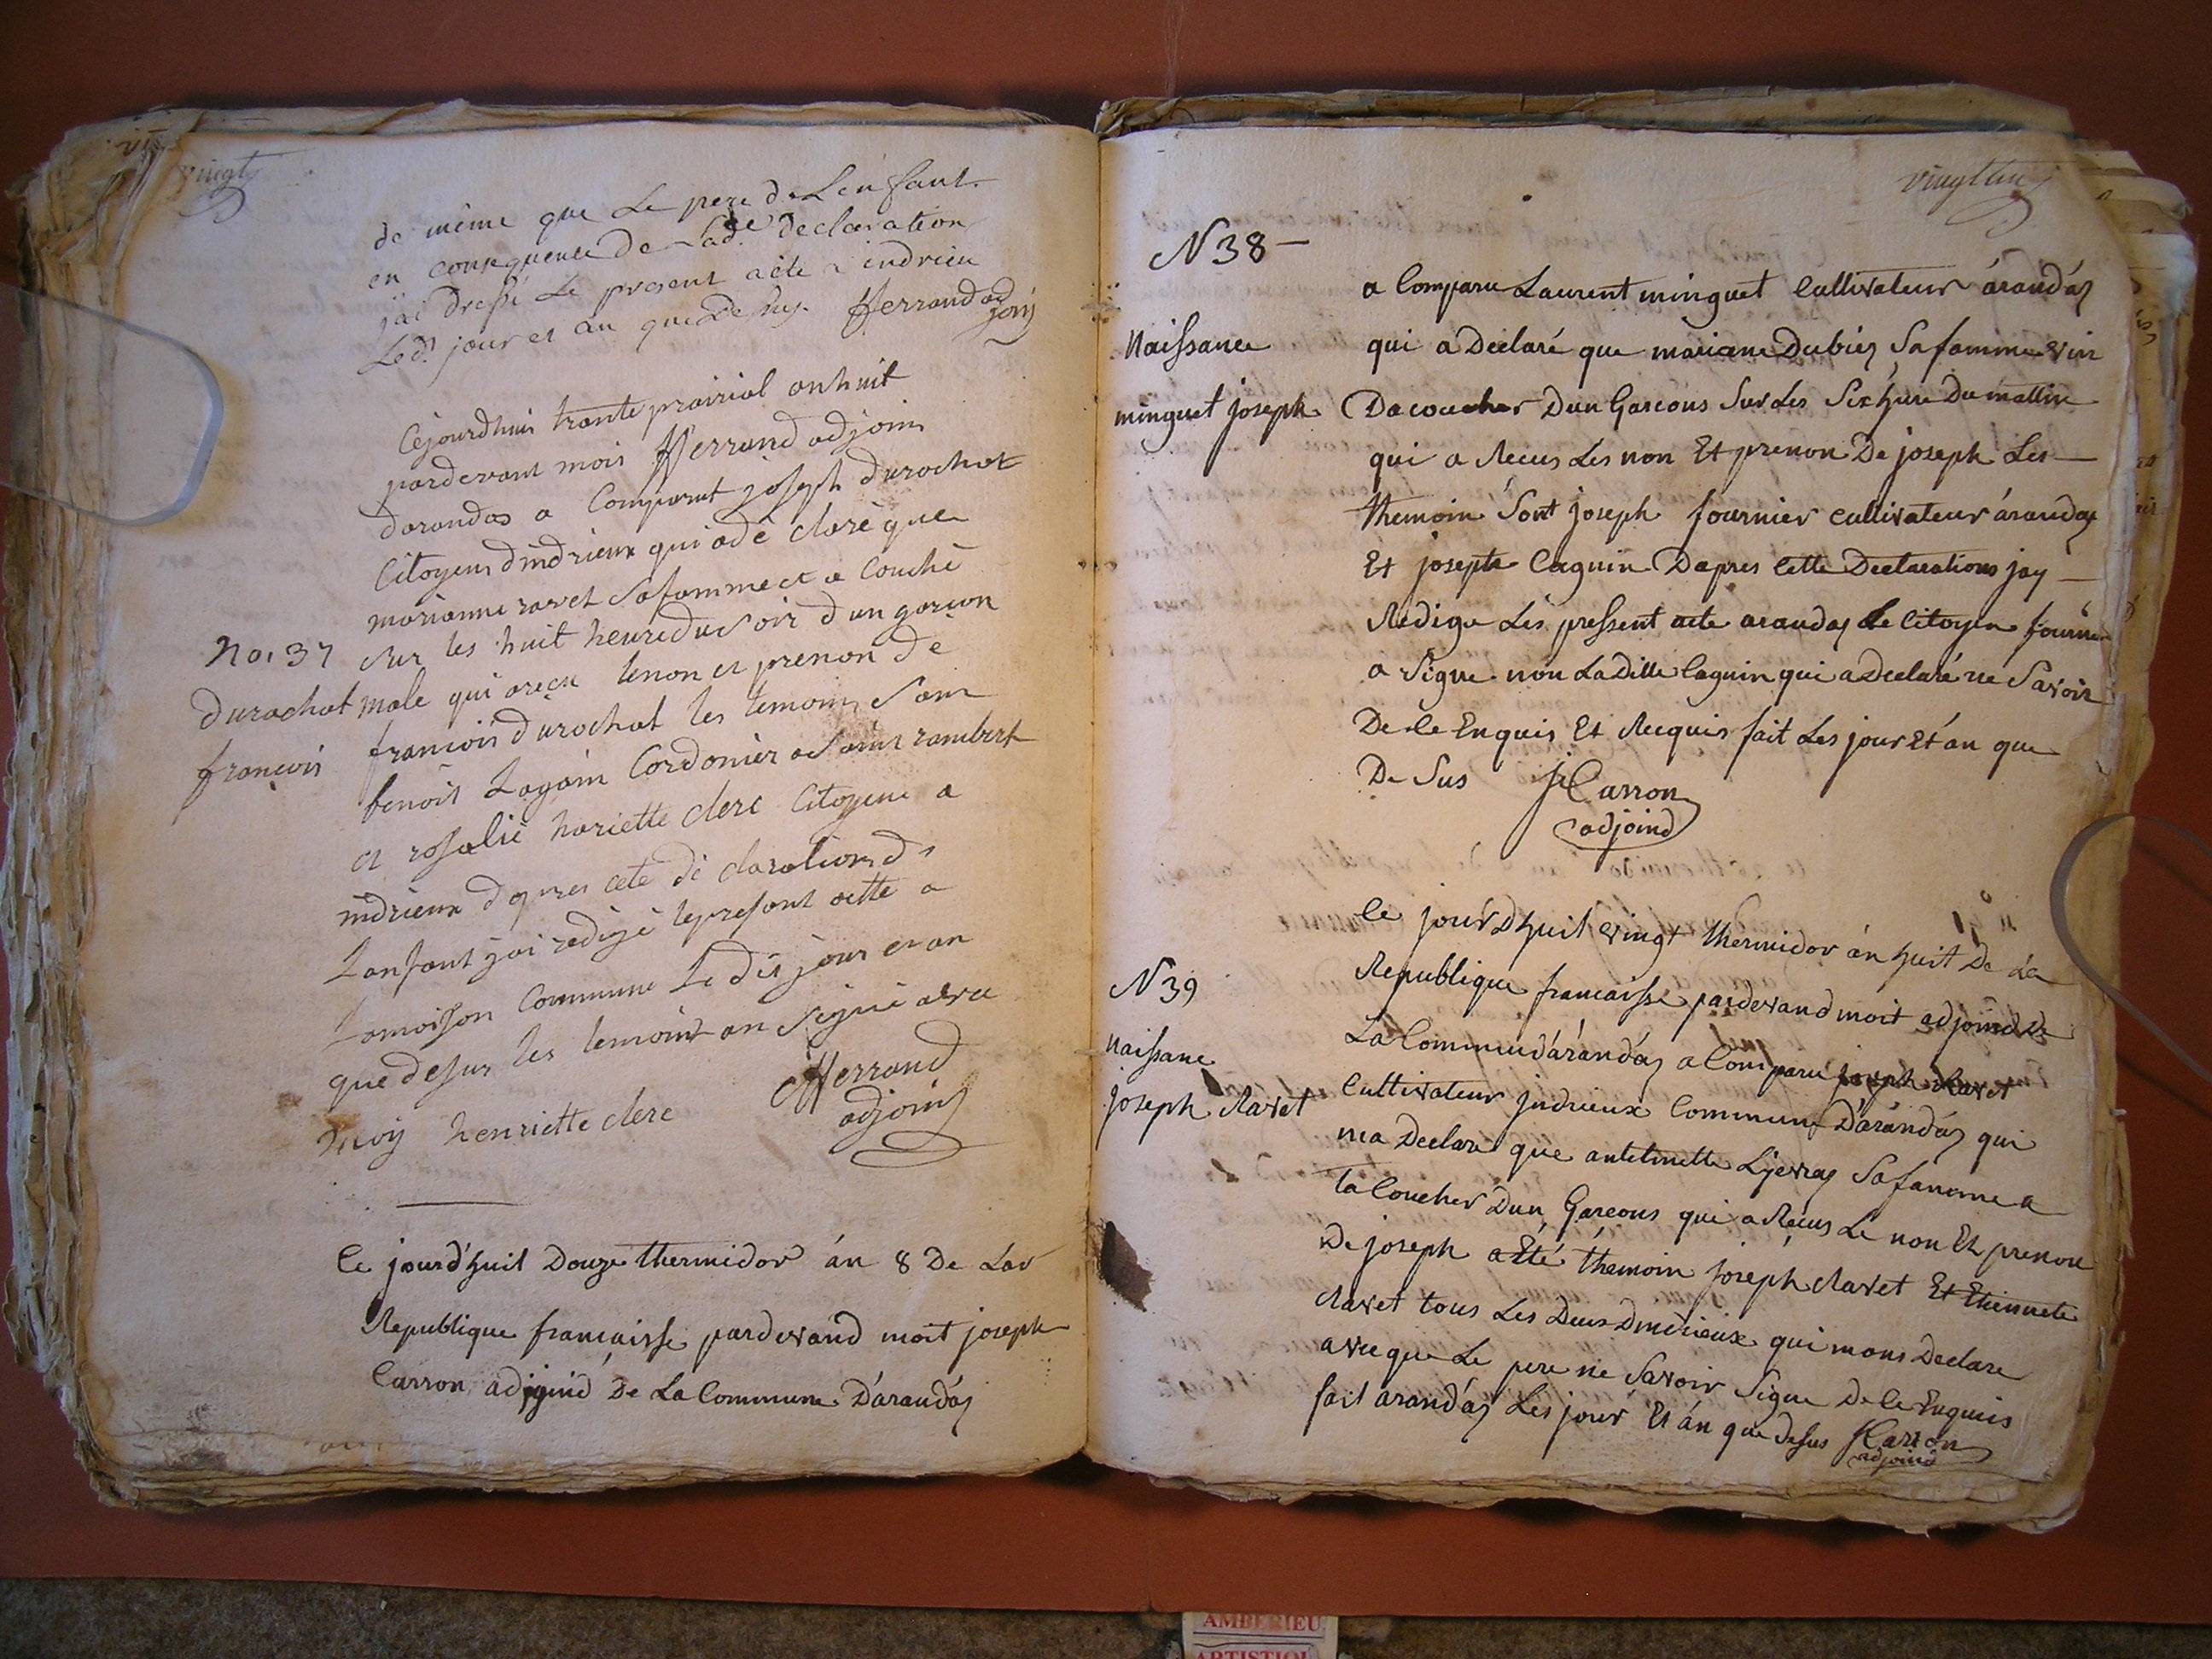 vingt
de même que Le pere de L'enfant
en consequence de Lade declaration
j'ai drepsé Le present acte a indrieu
Led. jour et an que Dessus. JHerrand ad
join
Cejourdhuis trante prairial anhuit
pardevant mois JHerrand adjoin
darandas a Comparut joseph durochat
Citoyens dindrieux qui adé claré que
marianne ravet Safamme et a Couché
No. 37 sur les huit heure du Soir d'un garçon
durochat male qui areçu lenon et prenon dé
françois françois durochat les temoins Son
benoit Lagoin Cordonier a Saint rambert
et rosalie hariette clerc Citoyene a
indrieux d'apres cete dé claration de
Lanfant jai redigé lepresant actte a
Lamaison Commune Le dit jour et an
que desus les temoint an Signé avec
moij henriette clerc JHerrand
adjoint
Ce jourd'huil Douze thermidor án 8 De Lav
Republique francaisse pardevand moit joseph
Carron adjoind De La Commune Dárandás
vingt un
N 38 -
a Comparu Laurent minguet Cultivateur árandás
Naissance qui a Déclaré que mariane Dubies Sa famme vin
minguet joseph Dacoucher Dun Garcons Sur Les Six hure Du mattin
qui a Recus Les non Et prenon De joseph Les
themoin Sont joseph fournier cultivateur árandas
Et josepte Caguin Dapres Cette Declarations jay
Redige Les pressent acte arandas Le Citoyen fournier
a Signe non La Ditte Caguin qui a Declaré ne Savoir
De Ce Enquis Et Requis fait Les jour Et án que
De Sus JCarron
adjoind
Ce jourdhuit vingt thermidor án huit De La
N 39 Republique francaisse pardevand moit adjoind De
Naissane La Commund'árandás a Comparu joseph Ravet
joseph Ravet Cultivateur jndrieux Commune Dárándás qui
ma Declare que antelmette Lyevras Safamme a
ta Coucher Dun Garcons qui a Recus Le non Et prenon
De joseph a Eté themoin joseph Ravet Et Etiennete
Ravet tous Les Deus Dindrieux qui mons Declare
aveque Le pere ne Savoir Signe De Ce Enquis
fait arandás Les jour Et án que desus JCarron
adjoind
AMBERIEU
ARTISTIQU